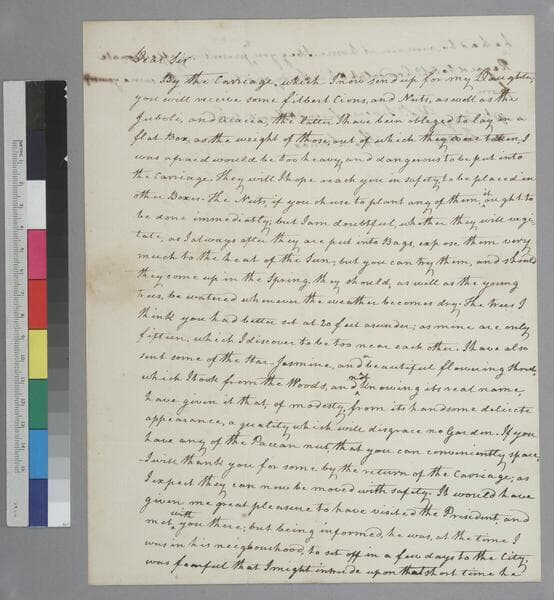 Dear Sir
By the Carriage, which I now send up for my Daughter,
you will receive some filbert Cions, and Nuts, as well as the
Jubole, and Acacia, the latter I have been obliged to lay in a
flat Box, as the weight of those, out of which they were taken, I
was afraid would be too heavy, and dangerous to be put into
the Carriage. They will I hope reach you in safety, to be placed in
other Boxes. The Nuts, if you chuse to plant any of them, it ought to
be done immediently; but I am doubtful, whether they will vegi-
tate, as I always after they are put into Bags, expose them very
much to the heat of the Sun; but you can try them, and should
they come up in the Spring, they should, as well as the young
trees, be watered whenever the weather becomes dry. The trees I
think you had better set at 20 feet asunder; as mine are only
fifteen, which I discover to be too near each other. I have also
sent some of the Star Jasmine, and a beautiful flowering shrub,
which I took from the Woods, and not knowing its real name,
have given it that of modesty, from its handsome delicate
appearance, a quality which will disgrace no Garden. If you
have any of the Paccan nut, that you can conveniently space,
I will thank you for some by the return of the Carriage, as
I expect they can now be moved with safety. It would have
given me great pleasure to have visited the President, and
met with you there; but being informed, he was, at the time I
was in his neighbourhood, to set off in a few days to the City,
was fearful that I might intrude upon that short time he